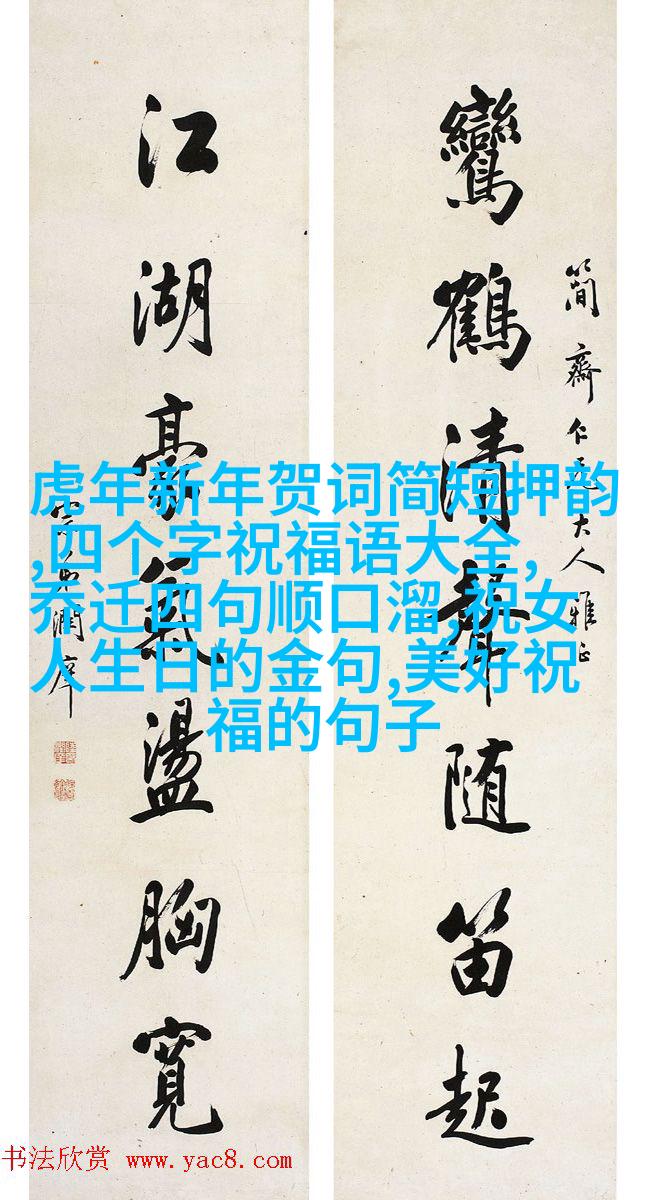 簡齋仁兄大人雅正
鸞鶴清聲随笛起
江湖豪氣盪胸寬
潤庠
虎年新年贺词简短押韵
,四个字祝福语大全,
乔迁四句顺口溜,祝女
人生日的金句,美好祝
福的句子
书法欣赏 www.yac8.com